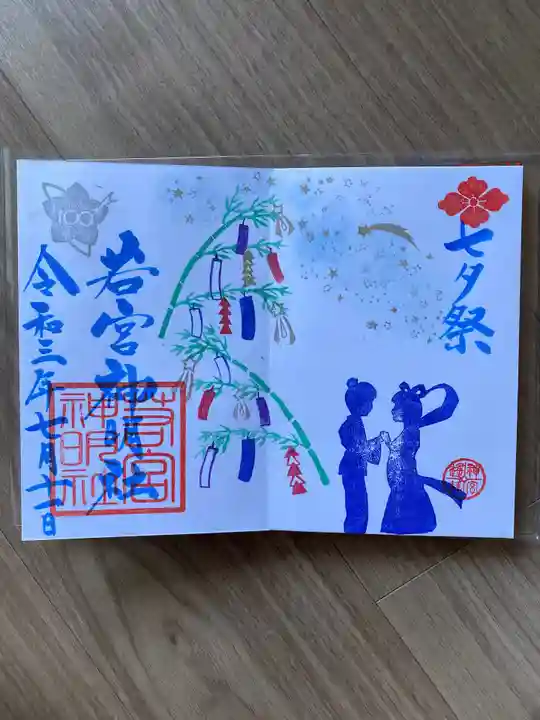 七夕祭
若宮神明社
令和三年七月十一日
100
若宮神明社